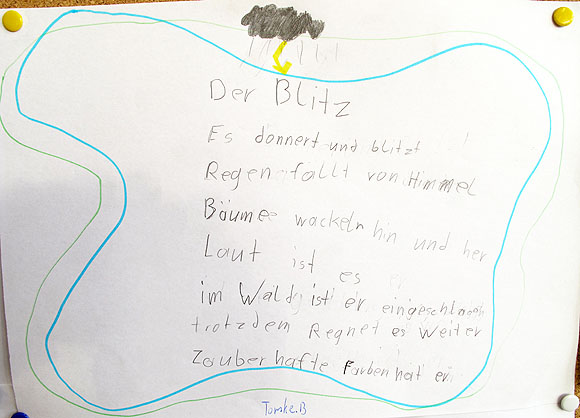 Der Blitz
Es donnert und blitzt
Regen fällt von Himmel
Bäume wackeln hin und her
Laut ist es er
im Wald ist er eingeschlagen
trotzdem Regnet es weiter
Zauberhafte Farben hat er
Tomke.B